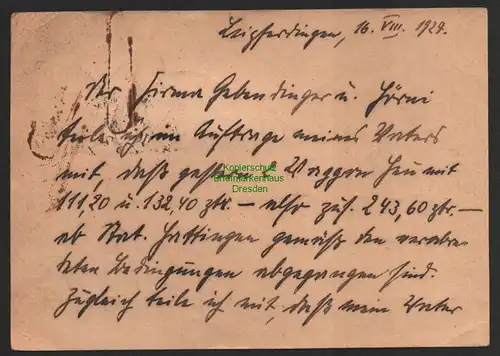 Leipferdingen, 16. VIII. 1929.
Der Firma Gebendinger u. Hörni
teile ich im Auftrage meines Vaters
mit, daß gestern 2 Waggon Heu mit
111,20 u. 132,40 ztr. – also zus. 243,60 ztr. –
ab Stat. Hattingen gemäß den verabre-
deten Bedingungen abgegangen sind.
Zugleich teile ich mit, daß mein Vater
Kopierschutz
Briefmarkenhaus
Dresden